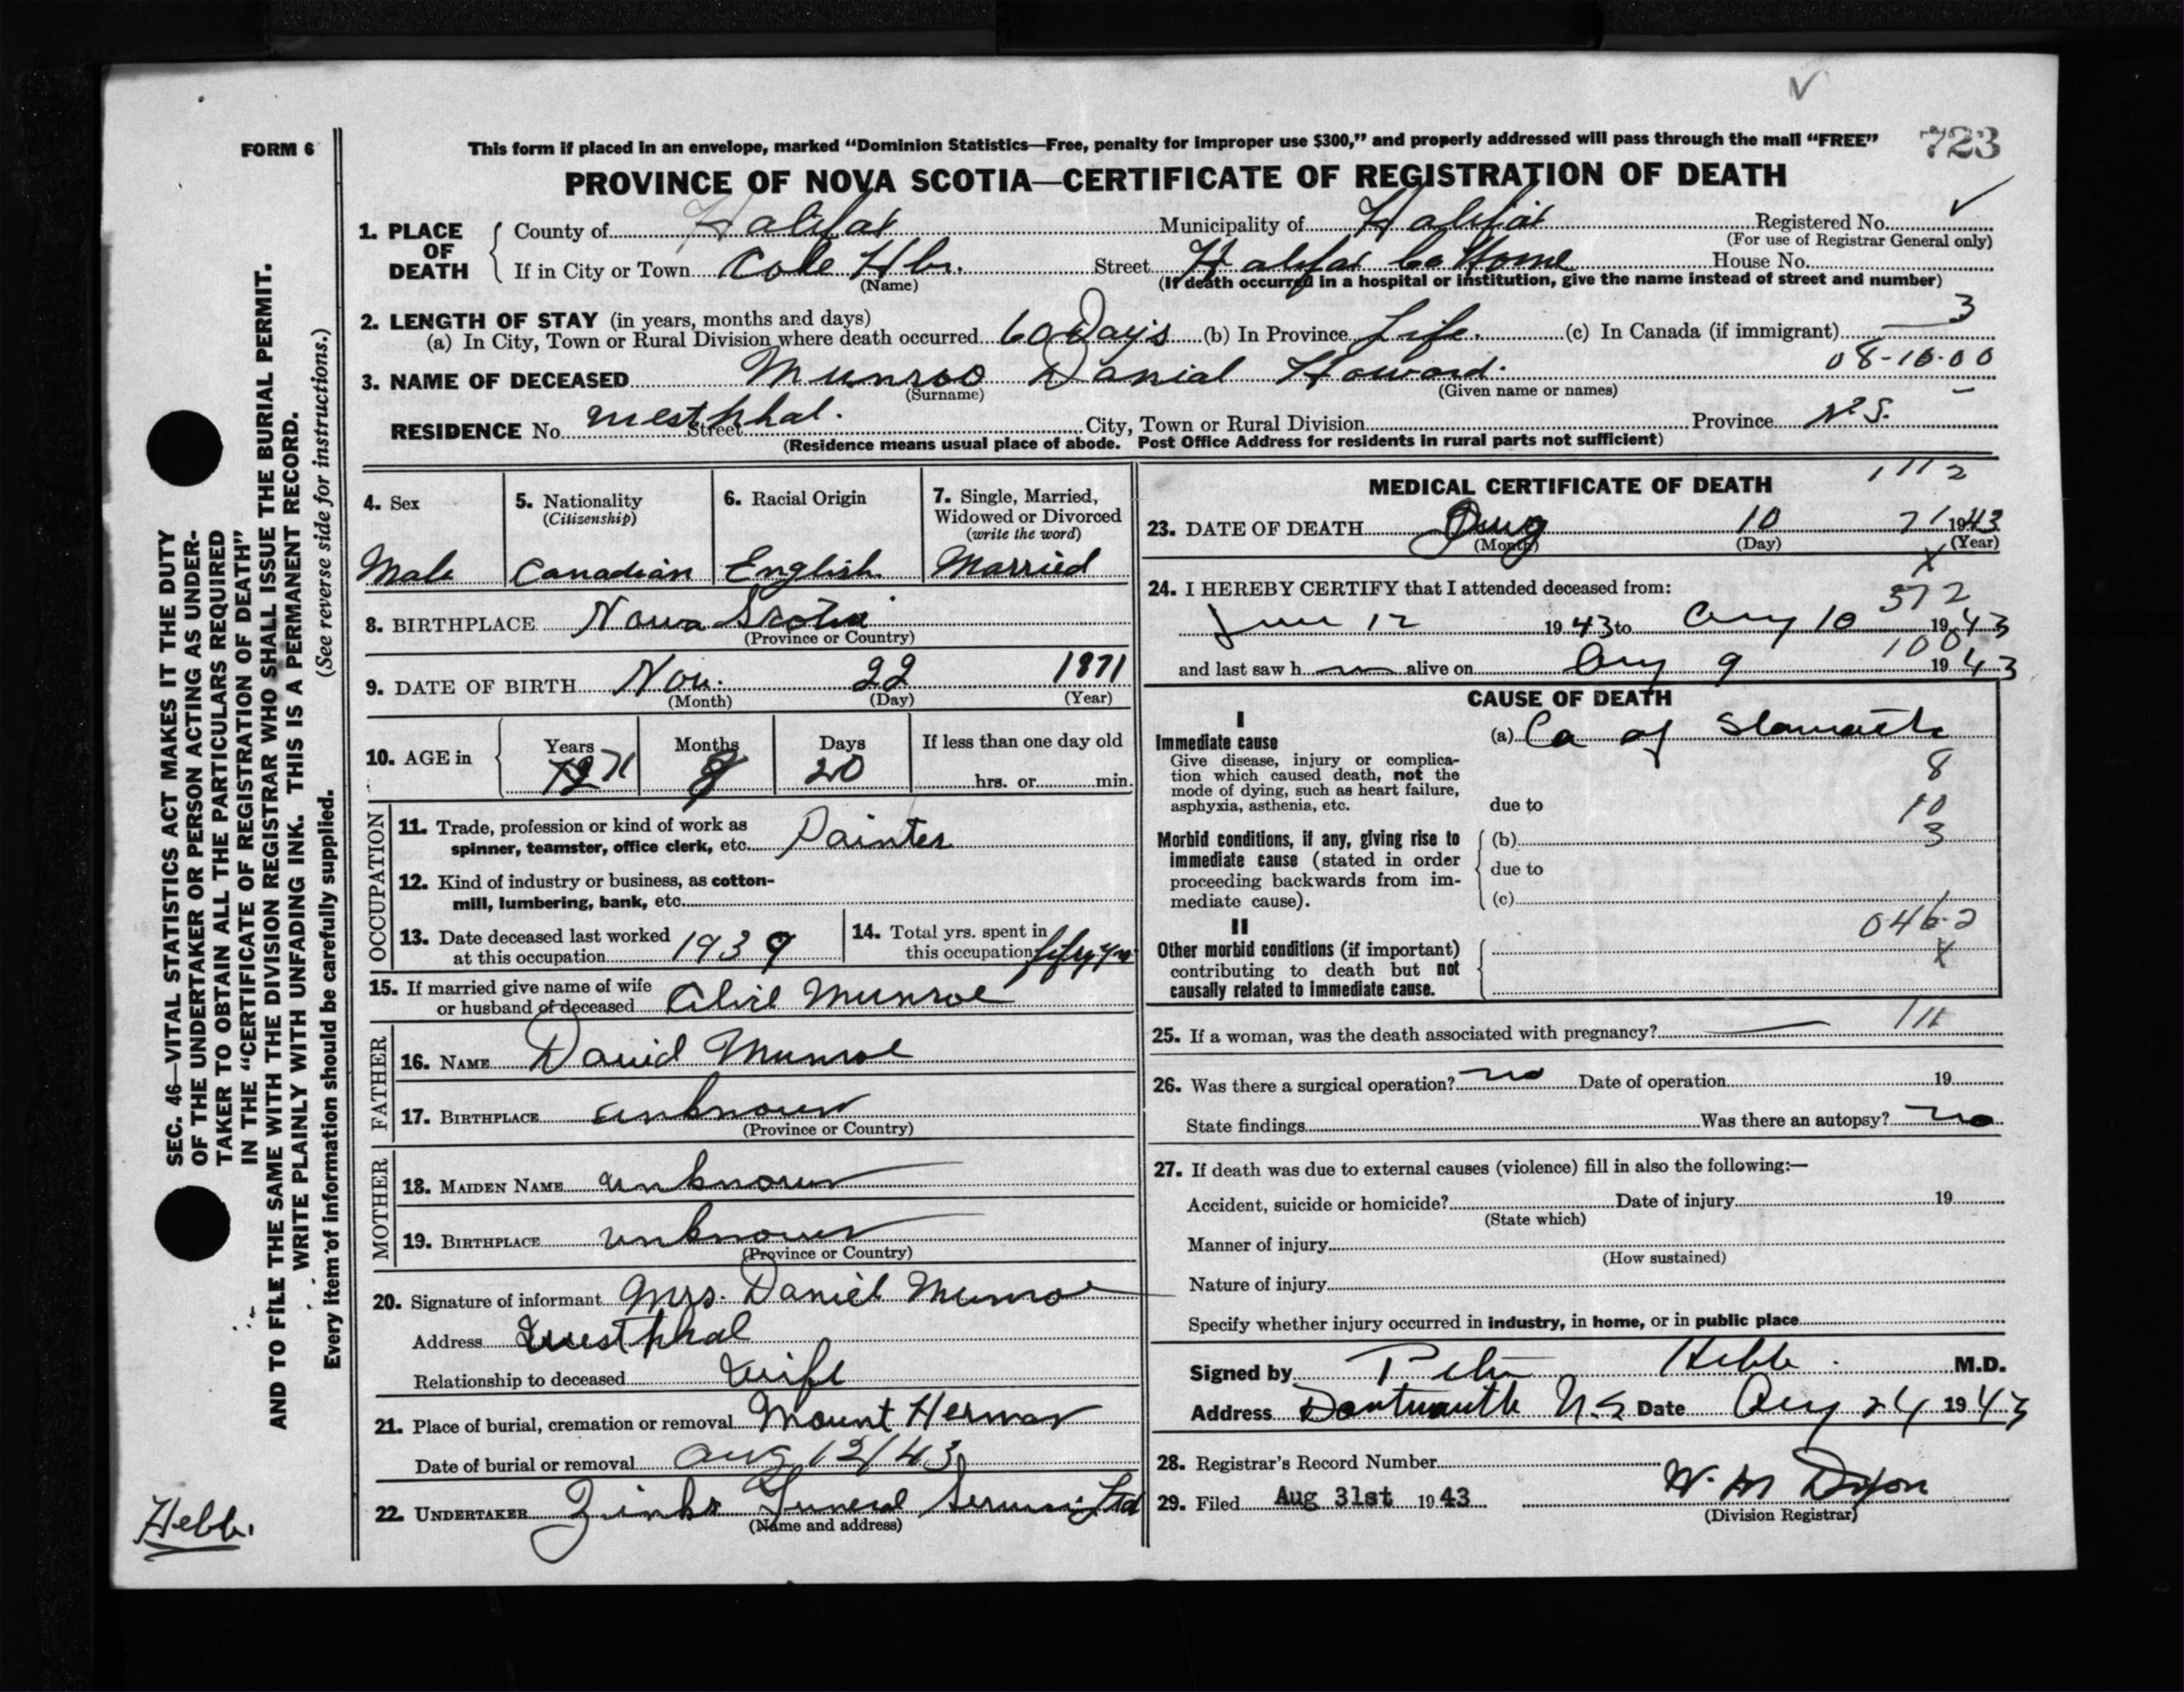 ✓
FORM 6
This form if placed in an envelope, marked “Dominion Statistics—Free, penalty for improper use $300,” and properly addressed will pass through the mail “FREE”
723
PROVINCE OF NOVA SCOTIA—CERTIFICATE OF REGISTRATION OF DEATH
1. PLACE OF DEATH
County of Halifax Municipality of Halifax Registered No. ✓
(For use of Registrar General only)
If in City or Town Cole Hbr. Street Halifax Co Home House No.
(Name) (If death occurred in a hospital or institution, give the name instead of street and number)
2. LENGTH OF STAY (in years, months and days) 3
(a) In City, Town or Rural Division where death occurred 60 Day's (b) In Province Life. (c) In Canada (if immigrant)
3. NAME OF DECEASED Munroe Danial Howard. 08-16-00
(Surname) (Given name or names)
RESIDENCE No. Westphal. Street City, Town or Rural Division Province N.S.
(Residence means usual place of abode. Post Office Address for residents in rural parts not sufficient)
4. Sex
Male
5. Nationality
(Citizenship)
Canadian
6. Racial Origin
English
7. Single, Married,
Widowed or Divorced
(write the word)
Married
8. BIRTHPLACE Nova Scotia
(Province or Country)
9. DATE OF BIRTH Nov. 22 1871
(Month) (Day) (Year)
10. AGE in
Years Months Days If less than one day old
71 8 20 hrs. or min.
OCCUPATION
11. Trade, profession or kind of work as
spinner, teamster, office clerk, etc. Painter
12. Kind of industry or business, as cotton-
mill, lumbering, bank, etc.
13. Date deceased last worked
at this occupation 1939
14. Total yrs. spent in
this occupation fifty yrs
15. If married give name of wife
or husband of deceased Alice Munroe
FATHER
16. NAME David Munroe
17. BIRTHPLACE unknown
(Province or Country)
MOTHER
18. MAIDEN NAME unknown
19. BIRTHPLACE unknown
(Province or Country)
20. Signature of informant Mrs. Daniel Munroe
Address Westphal
Relationship to deceased Wife
21. Place of burial, cremation or removal Mount Herman
Date of burial or removal Aug 12/43
22. UNDERTAKER Zinks Funeral Service Ltd
(Name and address)
MEDICAL CERTIFICATE OF DEATH 1112
23. DATE OF DEATH Aug 10 71 1943
(Month) (Day) (Year)
x
24. I HEREBY CERTIFY that I attended deceased from:
372
June 12 1943 to Aug 10 1943
100
and last saw h m alive on Aug 9 1943
CAUSE OF DEATH
I
Immediate cause
Give disease, injury or complica-
tion which caused death, not the
mode of dying, such as heart failure,
asphyxia, asthenia, etc.
(a) Ca of Stomach
8
due to 10
Morbid conditions, if any, giving rise to
immediate cause (stated in order
proceeding backwards from im-
mediate cause).
(b) 3
due to
(c)
046-2
x
II
Other morbid conditions (if important)
contributing to death but not
causally related to immediate cause.
25. If a woman, was the death associated with pregnancy? —
26. Was there a surgical operation? no Date of operation 19
State findings Was there an autopsy? no
27. If death was due to external causes (violence) fill in also the following:—
Accident, suicide or homicide? Date of injury 19
(State which)
Manner of injury
(How sustained)
Nature of injury
Specify whether injury occurred in industry, in home, or in public place
Signed by Peter Hebb. M.D.
Address Dartmouth N.S Date Aug 24 1943
28. Registrar's Record Number
29. Filed Aug 31st 1943 W. M Dixon
(Division Registrar)
SEC. 46—VITAL STATISTICS ACT MAKES IT THE DUTY
OF THE UNDERTAKER OR PERSON ACTING AS UNDER-
TAKER TO OBTAIN ALL THE PARTICULARS REQUIRED
IN THE “CERTIFICATE OF REGISTRATION OF DEATH”
AND TO FILE THE SAME WITH THE DIVISION REGISTRAR WHO SHALL ISSUE THE BURIAL PERMIT.
WRITE PLAINLY WITH UNFADING INK. THIS IS A PERMANENT RECORD.
Every item of information should be carefully supplied. (See reverse side for instructions.)
Hebb.